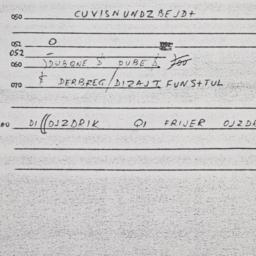 050 CUVISNUNDZBEJD+
051 O
052 -
060 )DUBQNE
070 & DERBREG/DIZAJT FUNS+TUL
DI((OJZDRIK QI FRIJER OJZDR